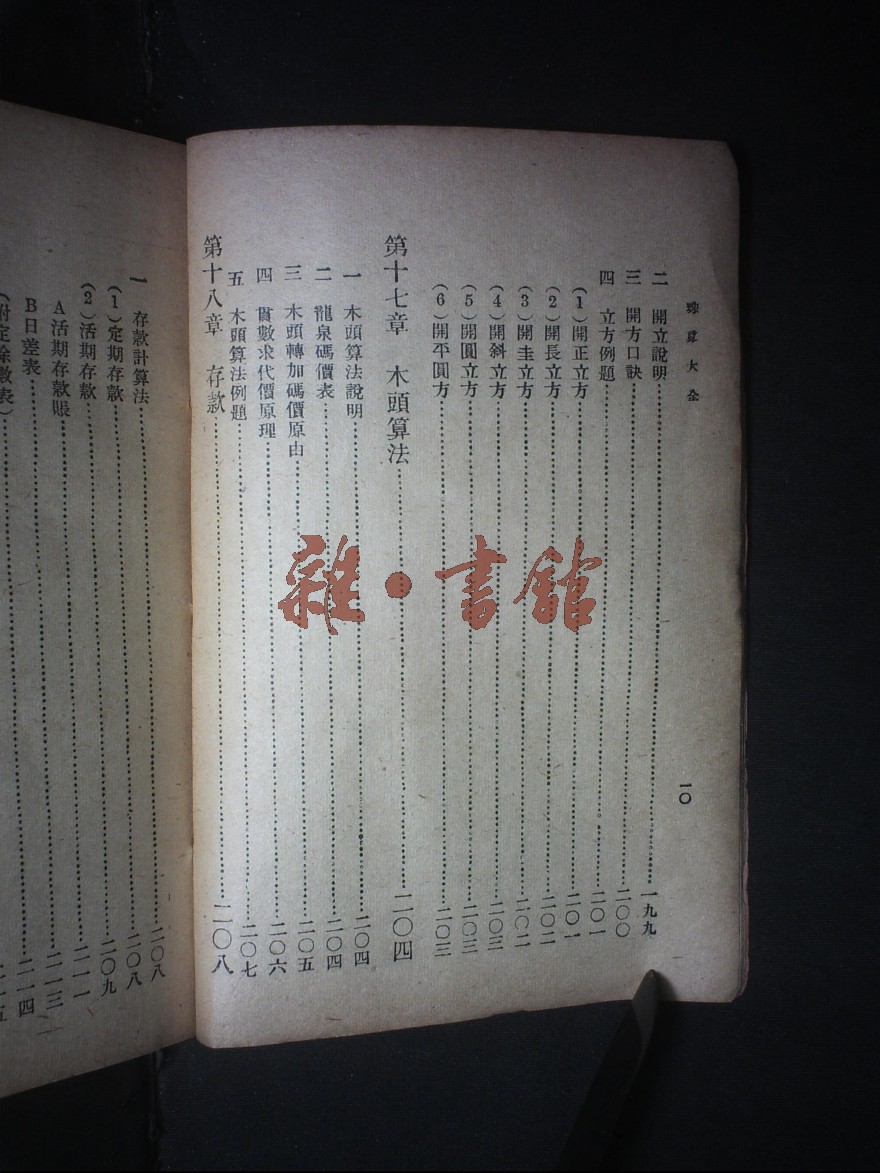 珠算大全
一〇
二　開立說明……一九九
三　開方口訣……二〇〇
四　立方例題……二〇一
(1)開正立方……二〇一
(2)開長立方……二〇二
(3)開圭立方……二〇二
(4)開斜立方……二〇三
(5)開圓立方……二〇三
(6)開平圓方……二〇三
第十七章　木頭算法……二〇四
一　木頭算法說明……二〇四
二　龍泉碼價表……二〇四
三　木頭轉加碼價原由……二〇五
四　貫數求代價原理……二〇六
五　木頭算法例題……二〇七
第十八章　存款……二〇八
一　存款計算法……二〇八
(1)定期存款……二〇八
(2)活期存款……二〇九
A活期存款賬……二一一
B日差表……二一三
(附定除數表)……二一四
雜·書館